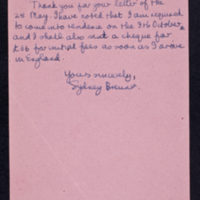 Thank you for your letter of the
25 May. I have noted that I am required
to come into residence on the 9th October,
and I shall also send a cheque for
for initial fees as soon as I arrive
in England.
Yours sincerely,
Sydney Brenner